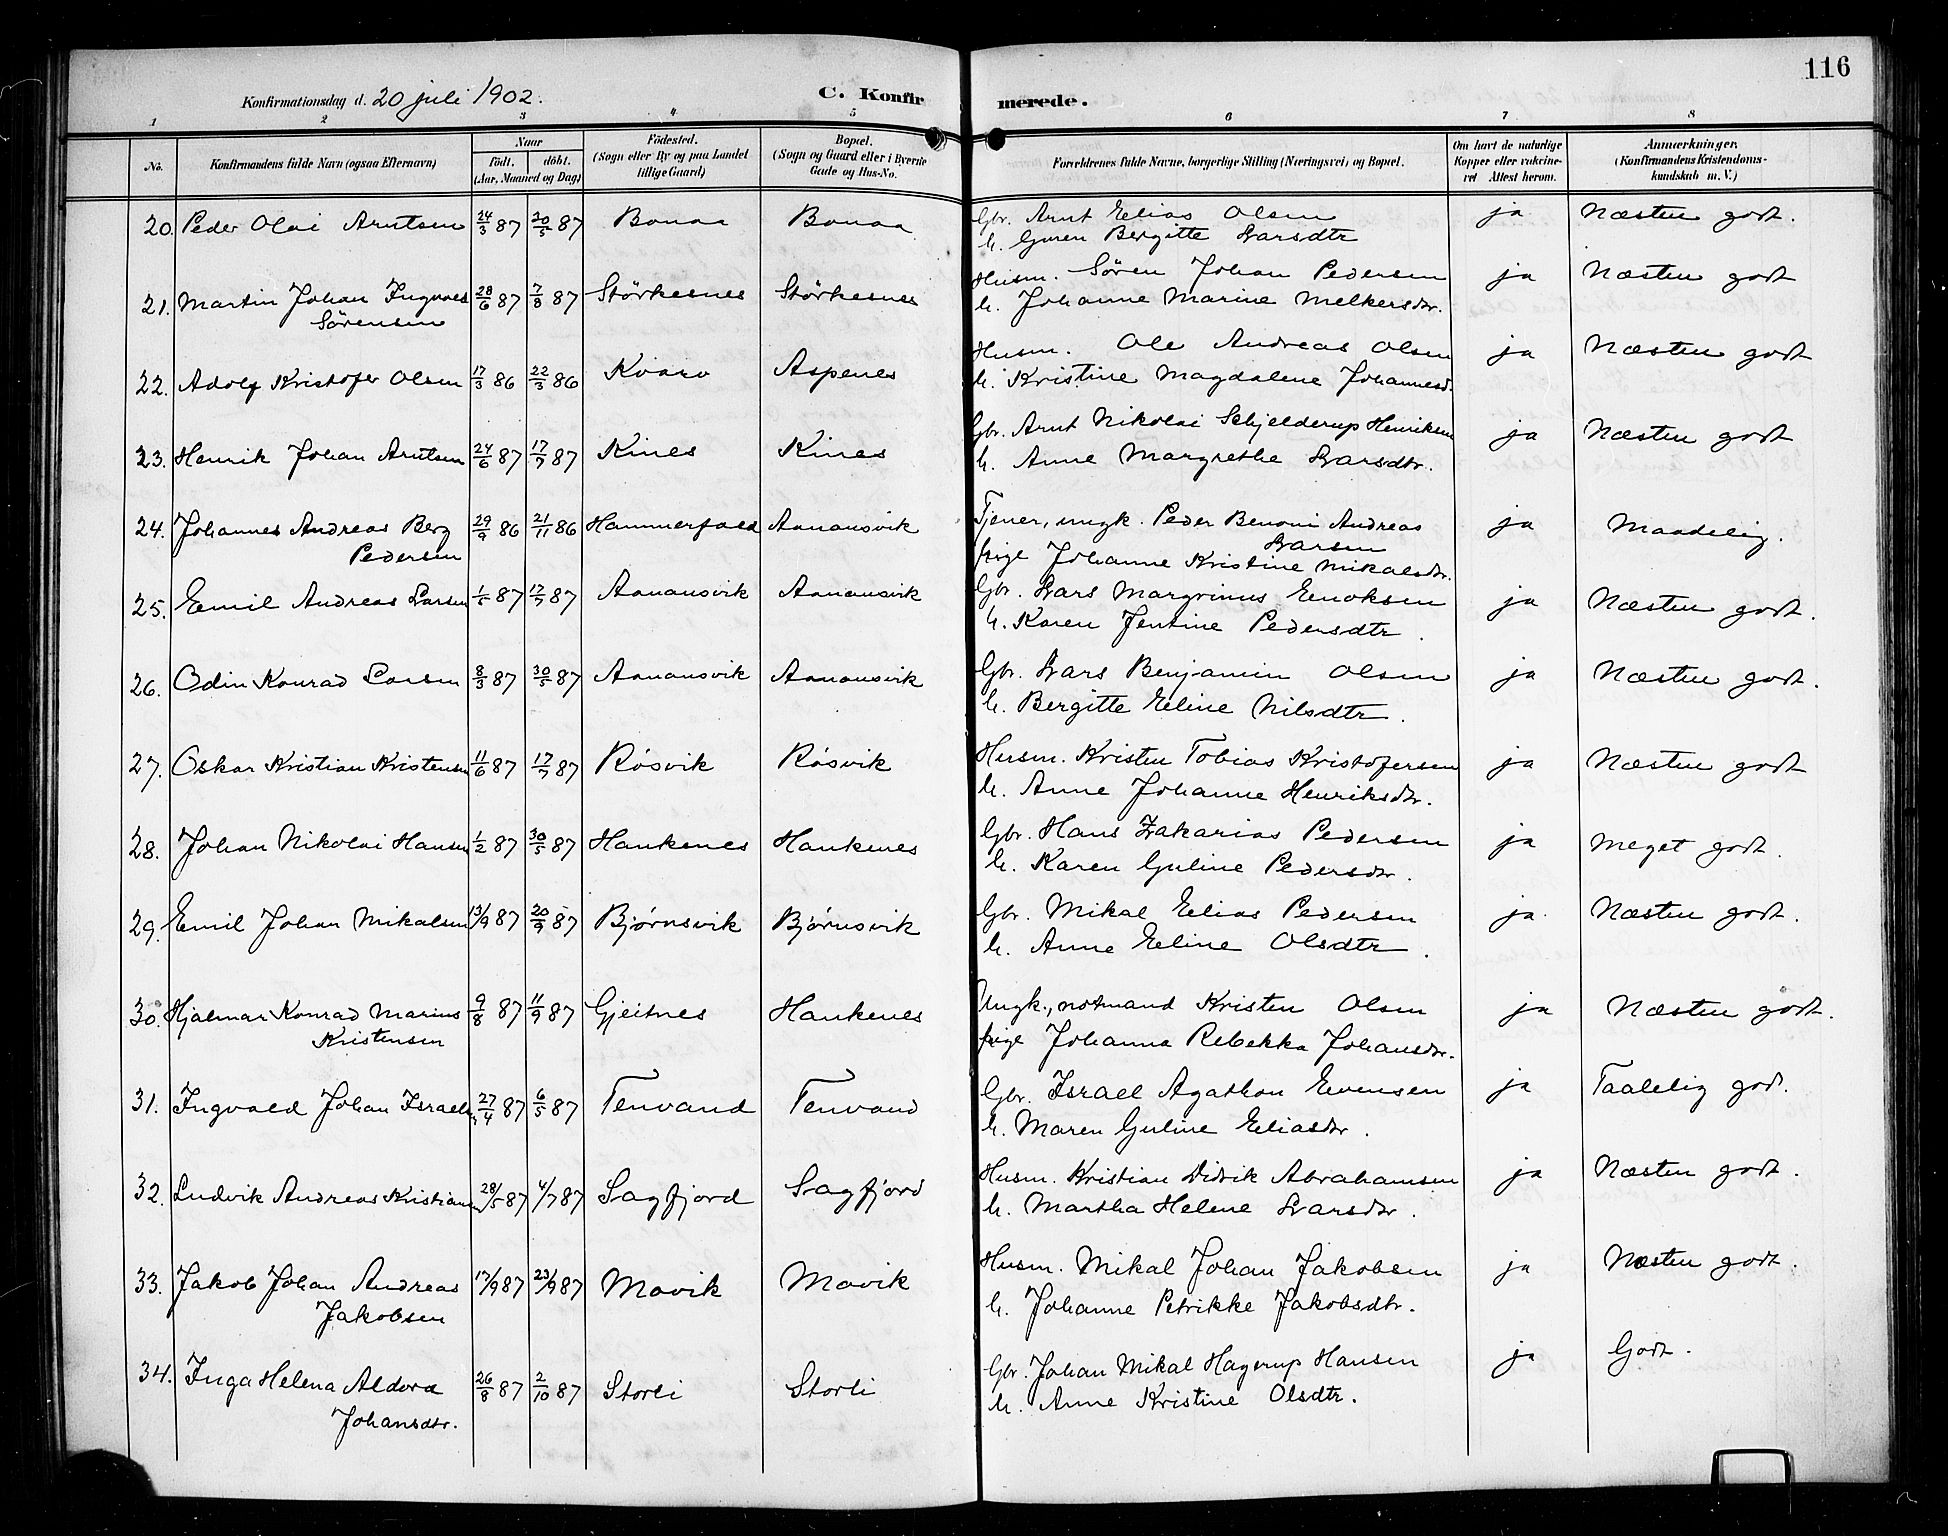 116
Konfirmationsdag d. 20 juli 1902.
C. Konfirmerede.
1 2 3 4 5 6 7 8
No. Konfirmandens fulde Navn (ogsaa Efternavn) Naar födt. döbt. (Aar, Maaned og Dag) Födested. (Sogn eller By og paa Landet tillige Gaard) Bopæl. (Sogn og Gaard eller i Byerne Gade og Hus-No. Forældrenes fulde Navne, borgerlige Stilling (Næringsvei) og Bopæl. Om havt de naturlige Kopper eller vaccineret Attest herom. Anmærkninger. (Konfirmandens Kristendomskundskab m. V.)
20. Peder Olai Arntsen 24/3 87 20/5 87 Bonaa Bonaa Gbr. Arnt Elias Olsen ja Næsten godt.
h. Guren Bergitte Larsdtr
21. Martin Johan Ingvald 28/6 87 7/8 87 Störkesnes Störkesnes Husm. Sören Johan Pedersen ja Næsten godt
Sörensen h. Johanne Marine Melkersdtr.
22. Adolf Kristofer Olsen 17/3 86 22/3 86 Kvaro Aspenes Husm. Ole Andreas Olsen ja Næsten godt
h. Kristine Magdalene Johannesd.
23. Henrik Johan Arntsen 24/6 87 17/7 87 Kines Kines Gbr. Arnt Nikolai Schjelderup Henriksen ja Næsten godt
h. Anne Margrethe Larsdtr.
24. Johannes Andreas Berg 29/9 86 21/11 86 Hammerfald Aanansvik Tjener, ungk. Peder Benoni Andreas ja Maadelig.
Pedersen Larsen
pige Johanne Kristine Mikalsdtr.
25. Emil Andreas Larsen 1/5 87 17/7 87 Aanansvik Aanansvik Gbr. Lars Margrinus Enoksen ja Næsten godt.
h. Karen Jentine Pedersdtr.
26. Odin Konrad Larsen 8/3 87 30/5 87 Aanansvik Aanansvik Gbr. Lars Benjamin Olsen ja Næsten godt.
h. Bergitte Eline Nilsdtr.
27. Oskar Kristian Kristensen 11/6 87 17/7 87 Røsvik Røsvik Husm. Kristen Tobias Kristofersen ja Næsten godt
h. Anne Johanne Henriksdtr.
28. Johan Nikolai Hansen 1/2 87 30/5 87 Hankenes Hankenes Gbr. Hans Zakarias Pedersen ja Meget godt.
h. Karen Guline Pedersdtr.
29. Emil Johan Mikalsen 13/9 87 20/9 87 Bjørnsvik Bjørnsvik Gbr. Mikal Elias Pedersen ja. Næsten godt.
h. Anne Eline Olsdtr.
30. Hjalmar Konrad Marius 9/8 87 11/9 87 Gjeitnes Hankenes Ungk., notmand Kristen Olsen ja Næsten godt.
Kristensen pige Johanna Rebekka Johansdtr.
31. Ingvald Johan Israelsen 27/4 87 6/5 87 Tenvand Tenvand Gbr. Israel Agathon Evensen ja Taalelig god.
h. Maren Guline Eliasdtr.
32. Ludvik Andreas Kristiansen 28/5 87 4/7 87 Sagfjord Sagfjord Husm. Kristian Didrik Abrahamsen ja Næsten godt.
h. Martha Helene Larsdtr.
33. Jakob Johan Andreas 17/9 87 23/9 87 Movik Movik Husm. Mikal Johan Jakobsen ja Næsten godt.
Jakobsen h. Johanne Petrikke Jakobsdtr.
34. Inga Helena Aldora 26/8 87 2/10 87 Storli Storli Gbr. Johan Mikal Hagerup Hansen ja Godt.
Johansdtr. h. Anne Kristine Olsdtr.